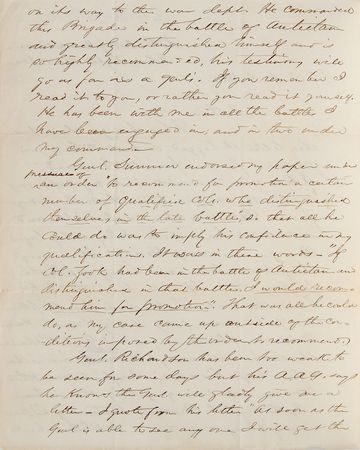 on its way to the war dept. He commanded
this Brigade in the battle of Antietam
and greatly distinguished himself and is
so highly recommended, his testimony will
go as far as a Genl's. If you remember I
read it to you, or rather you read it yourself.
He has been with me in all the battles I
have been engaged in, and in two under
my command.
Genl. Sumner endorsed my paper under
pressure of
an order to recommend for promotion a certain
number of qualified Cols. who distinguished
themselves in the late battle, so that all he
could do was to imply his confidence in my
qualifications. It was in these words - "If
Col. had been in the battle of Antietam and
distinguished in that battle, I would recom-
mend him for promotion". That was all he could
do, as my case came up outside of the con-
ditions imposed by the order to recommend.
Genl. Richardson has been too weak to
be seen for some days but his A.A.G. says
he knows the Genl will gladly give me a
letter - I quote from his letter As soon as the
Genl is able to see any one I will get the